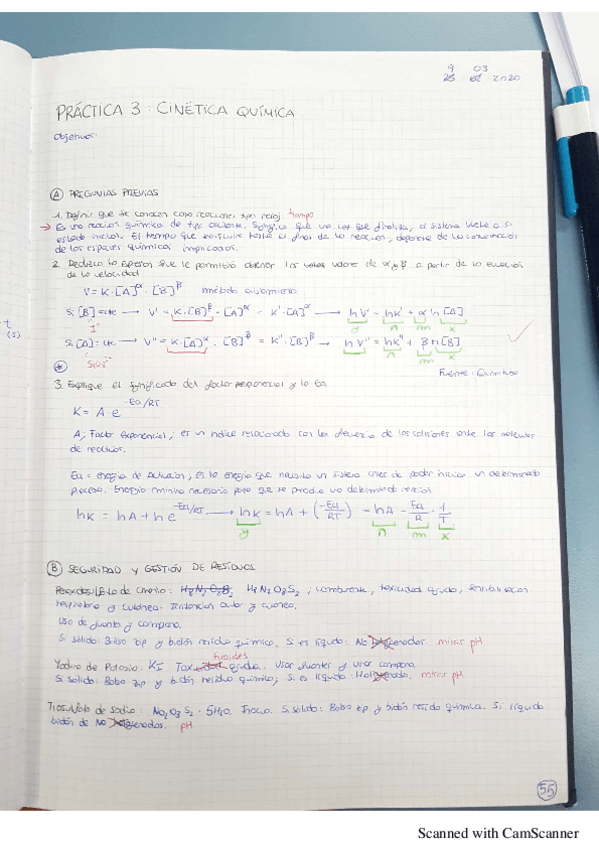 9 03
2020
PRÁCTICA 3: CINÉTICA QUÍMICA
Objetivos:
(A) PREGUNTAS PREVIAS
1. Definir que se conocen como reacciones tipo reloj. tiempo
→ Es una reacción química de tipo oscilante. Significa que una vez que finaliza, el sistema vuelve a su
estado inicial. El tiempo que transcurre hasta el final de la reacción, depende de la concentración
de las especies químicas implicadas.
2. Deduzca la expresión que le permitirá obtener los valores de α y β a partir de la ecuación
de la velocidad
V = K·[A]^α·[B]^β método aislamiento
Si [B] = cte → V' = K·[B]^β·[A]^α = K'·[A]^α → ln V' = ln K' + α ln [A]
y n m x
Si [A] = cte → V'' = K·[A]^α·[B]^β = K''·[B]^β → ln V'' = ln K'' + β ln [B]
y n m x
Fuente:
3. Explique el significado del factor exponencial y la Ea
K = A·e^-Ea/RT
A, Factor Exponencial, es un índice relacionado con la frecuencia de las colisiones entre las moléculas
de reactivos.
Ea = energía de Activación, es la energía que necesita un sistema antes de poder iniciar un determinado
proceso. Energía mínima necesaria para que se produzca una determinada reacción
ln K = ln A + ln e^-Ea/RT → ln K = ln A + (-Ea/RT) = ln A - Ea/R · 1/T
y n m x
(B) SEGURIDAD Y GESTIÓN DE RESÍDUOS
H8N2O8S2; comburente, toxicidad aguda, sensibilización
respiratoria y cutánea. Irritación ocular y cutánea.
Uso de guantes y campana.
Si sólido: Bolsa zip y bidón residuo químico, Si es líquido: No Halogenados. mirar pH
Yoduro de Potasio: KI tiroides aguda. Usar guantes y usar campana.
Si sólido: Bolsa zip y bidón residuo químico; Si es líquido: Halogenado. mirar pH
Tiosulfato de sodio: Na2O3S2·5H2O. Inocuo. Si sólido: Bolsa zip y bidón residuo química. Si líquido
bidón de No Halogenados. pH
t
(s)
55
Scanned with CamScanner